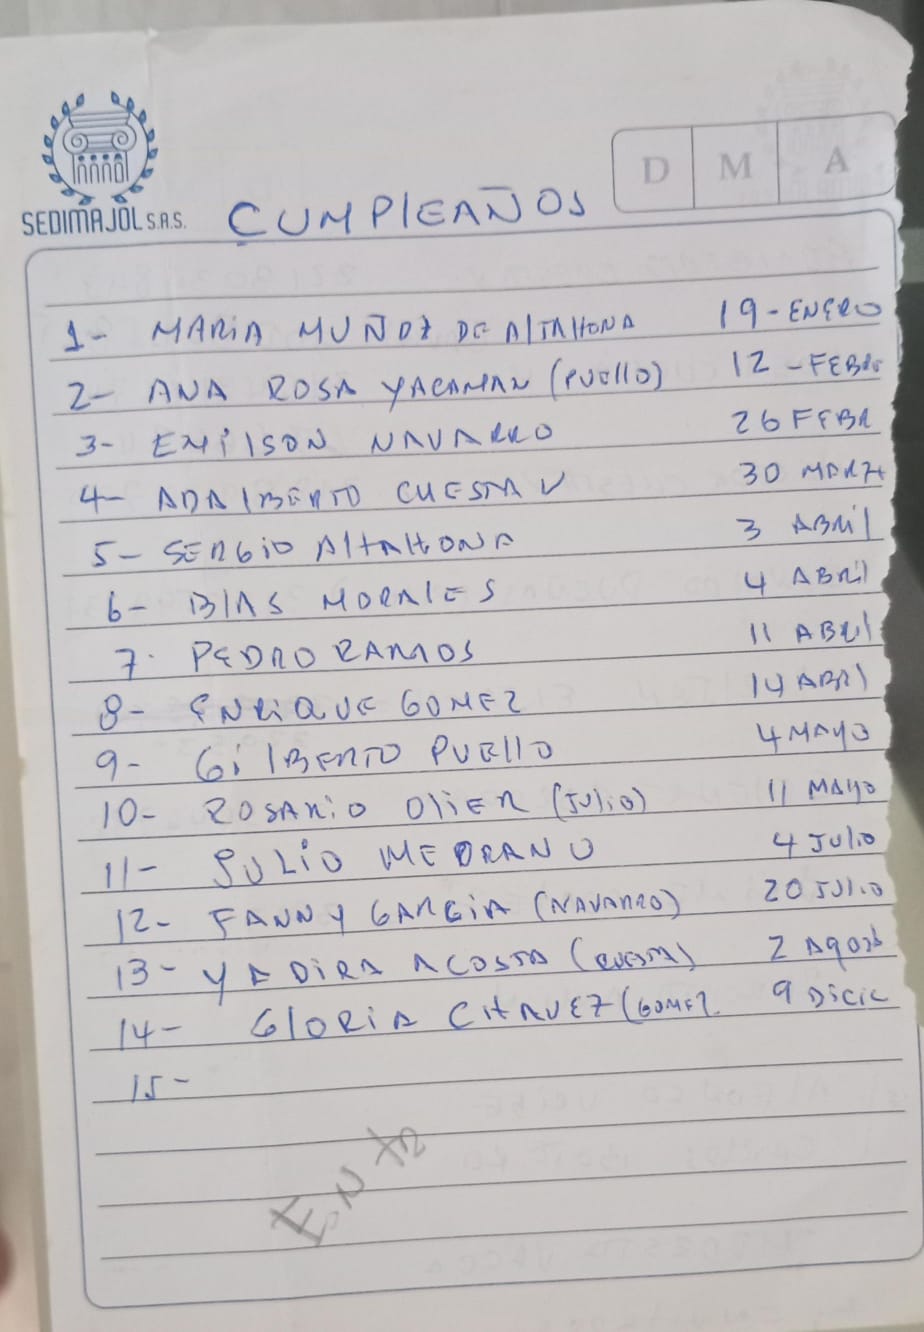 SEDIMAJOL S.A.S.
D M A
CUMPLEAÑOS
1- MARIA MUÑOZ DE AltAHONA 19-ENERO
2- ANA ROSA YACAMAN (PUEllO) 12-FEBR
3- EMilSON NAVARRO 26 FEBR
4- ADAlBERTO CUESTA V 30 MARZ
5- SERGiO AltAHONA 3 ABRil
6- BlAS MORAlES 4 ABRil
7. PEDRO RAMOS 11 ABRil
8- ENRiQUE GOMEZ 14 ABRl
9- GilBERTO PUEllO 4 MAYO
10- ROSARiO OliER (Julio) 11 MAYO
11- JULiO MEDRANO 4 Julio
12- FANNY GARCiA (NAVARRO) 20 JUlio
13- YADiRA ACOSTA (CUESTA) 2 Agosto
14- GlORiA CHAVEZ (GOMEZ 9 Dicie
15-